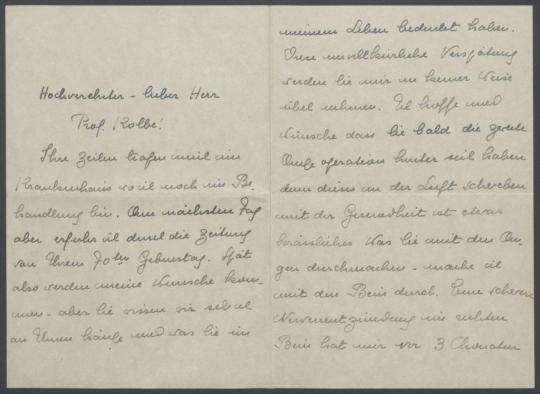 Hochverehrter - lieber Herr
Prof. Kolbe!
Ihre Zeilen trafen mich im
Krankenhaus wo ich noch in Be-
handlung bin. Am nächsten Tag
aber erfuhr ich durch die Zeitung
von Ihrem 70ten Geburtstag. Spät
also werden meine Wünsche kom-
men - aber Sie wissen wie sehr ich
an Ihnen hänge und was Sie in
meinem Leben bedeutet haben.
Diese unwillkürliche Verspätung
werden Sie mir in keiner Weise
übel nehmen. Ich hoffe und
wünsche dass Sie bald die zweite
Augenoperation hinter sich haben
denn dieses in der Luft schweben
mit der Gesundheit ist etwas
hässliches. Was Sie mit den Au-
gen durchmachen - mache ich
mit dem Bein durch. Eine schwere
Nervenentzündung im rechten
Bein hat mir vor 3 Monaten